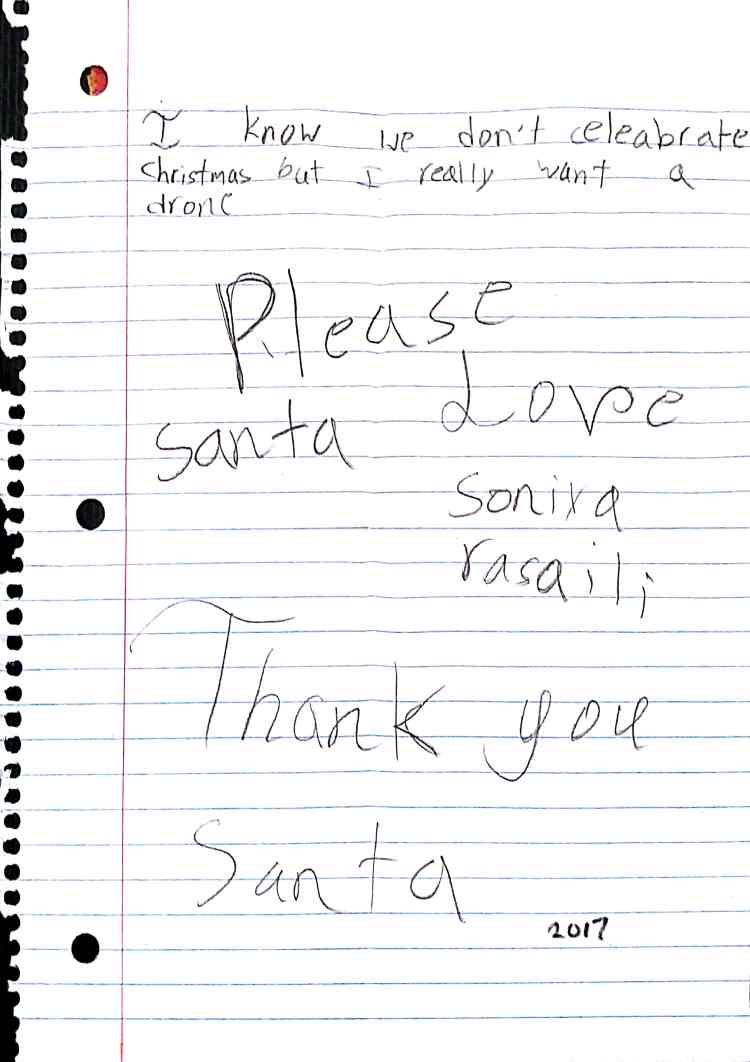 I know we don't celeabrate
Christmas but I really want a
drone
Please
santa
Love
sonixa
rasaili
Thank you
Santa
2017